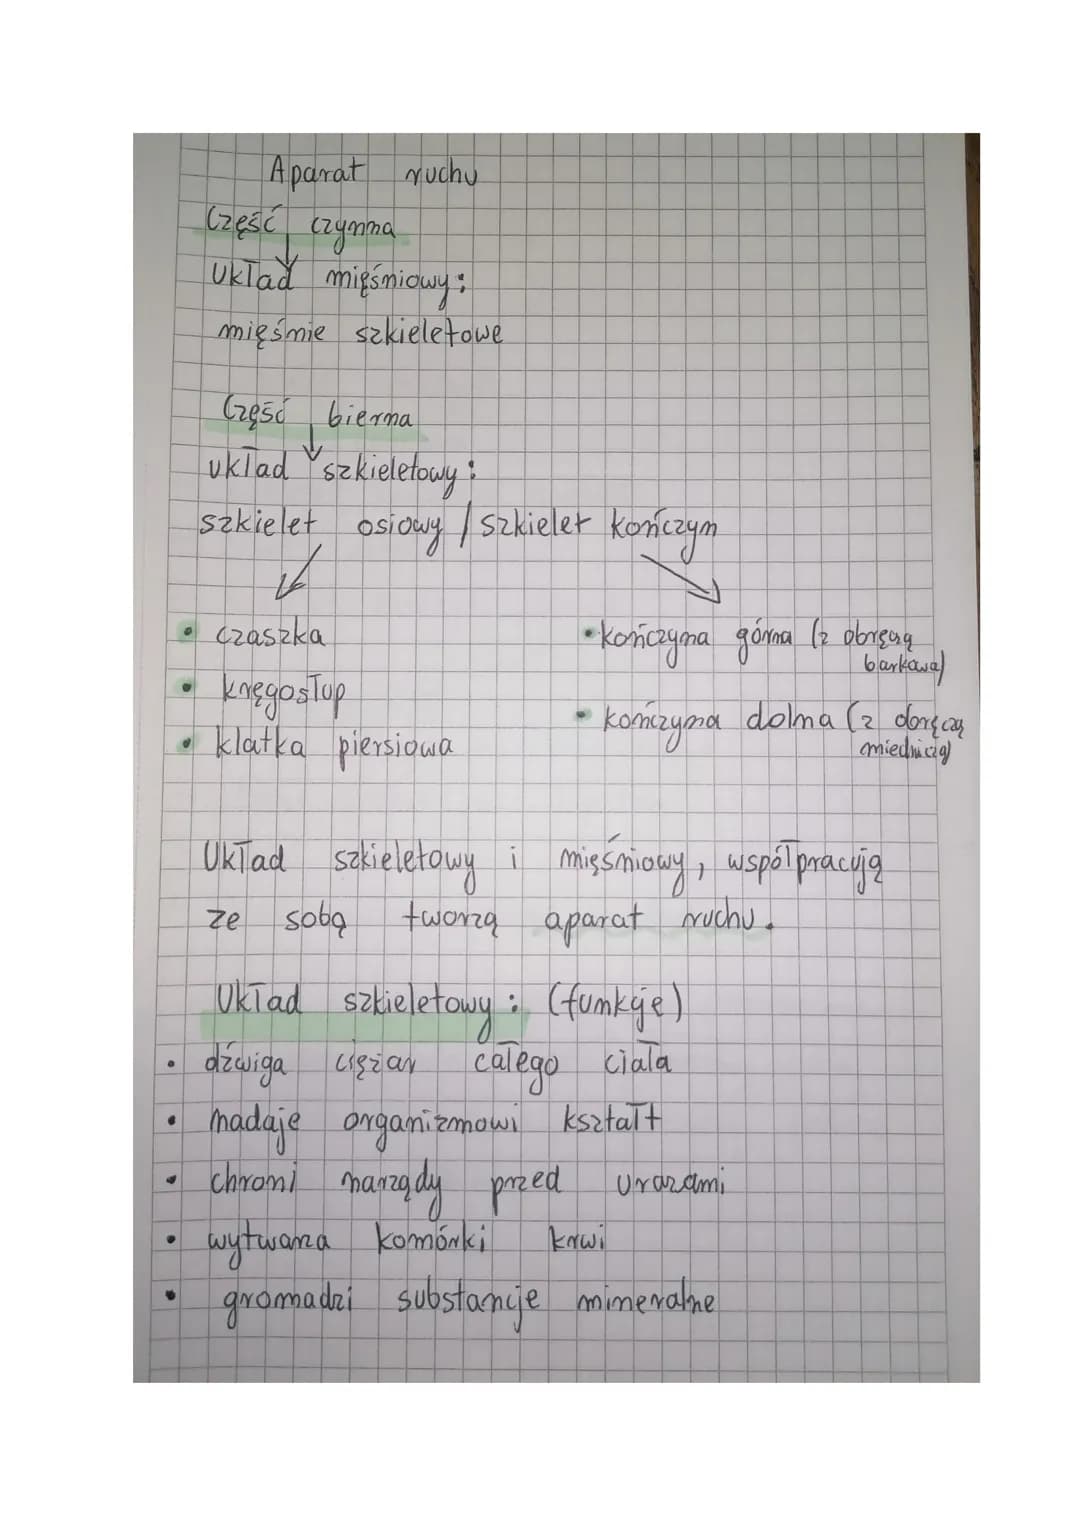 Aparat ruchu
Część czynna
Układ mięśniowy:
mięśnie szkieletowe
Część bierna
układ szkieletowy:
szkielet osiowy / szkielet kończyn
• czaszka
• kręgosłup
• klatka piersiowa
• kończyna górna (z obręczą
barkową)
• kończyna dolna (z doręczą
miedniczą)
Układ szkieletowy i mięśniowy, współpracują
ze sobą tworzą aparat ruchu.
Układ szkieletowy: (funkcje)
• dźwiga ciężar całego ciała
• nadaje organizmowi kształt
• chroni narządy przed urazami
• wytwarza komórki krwi
• gromadzi substancje mineralne